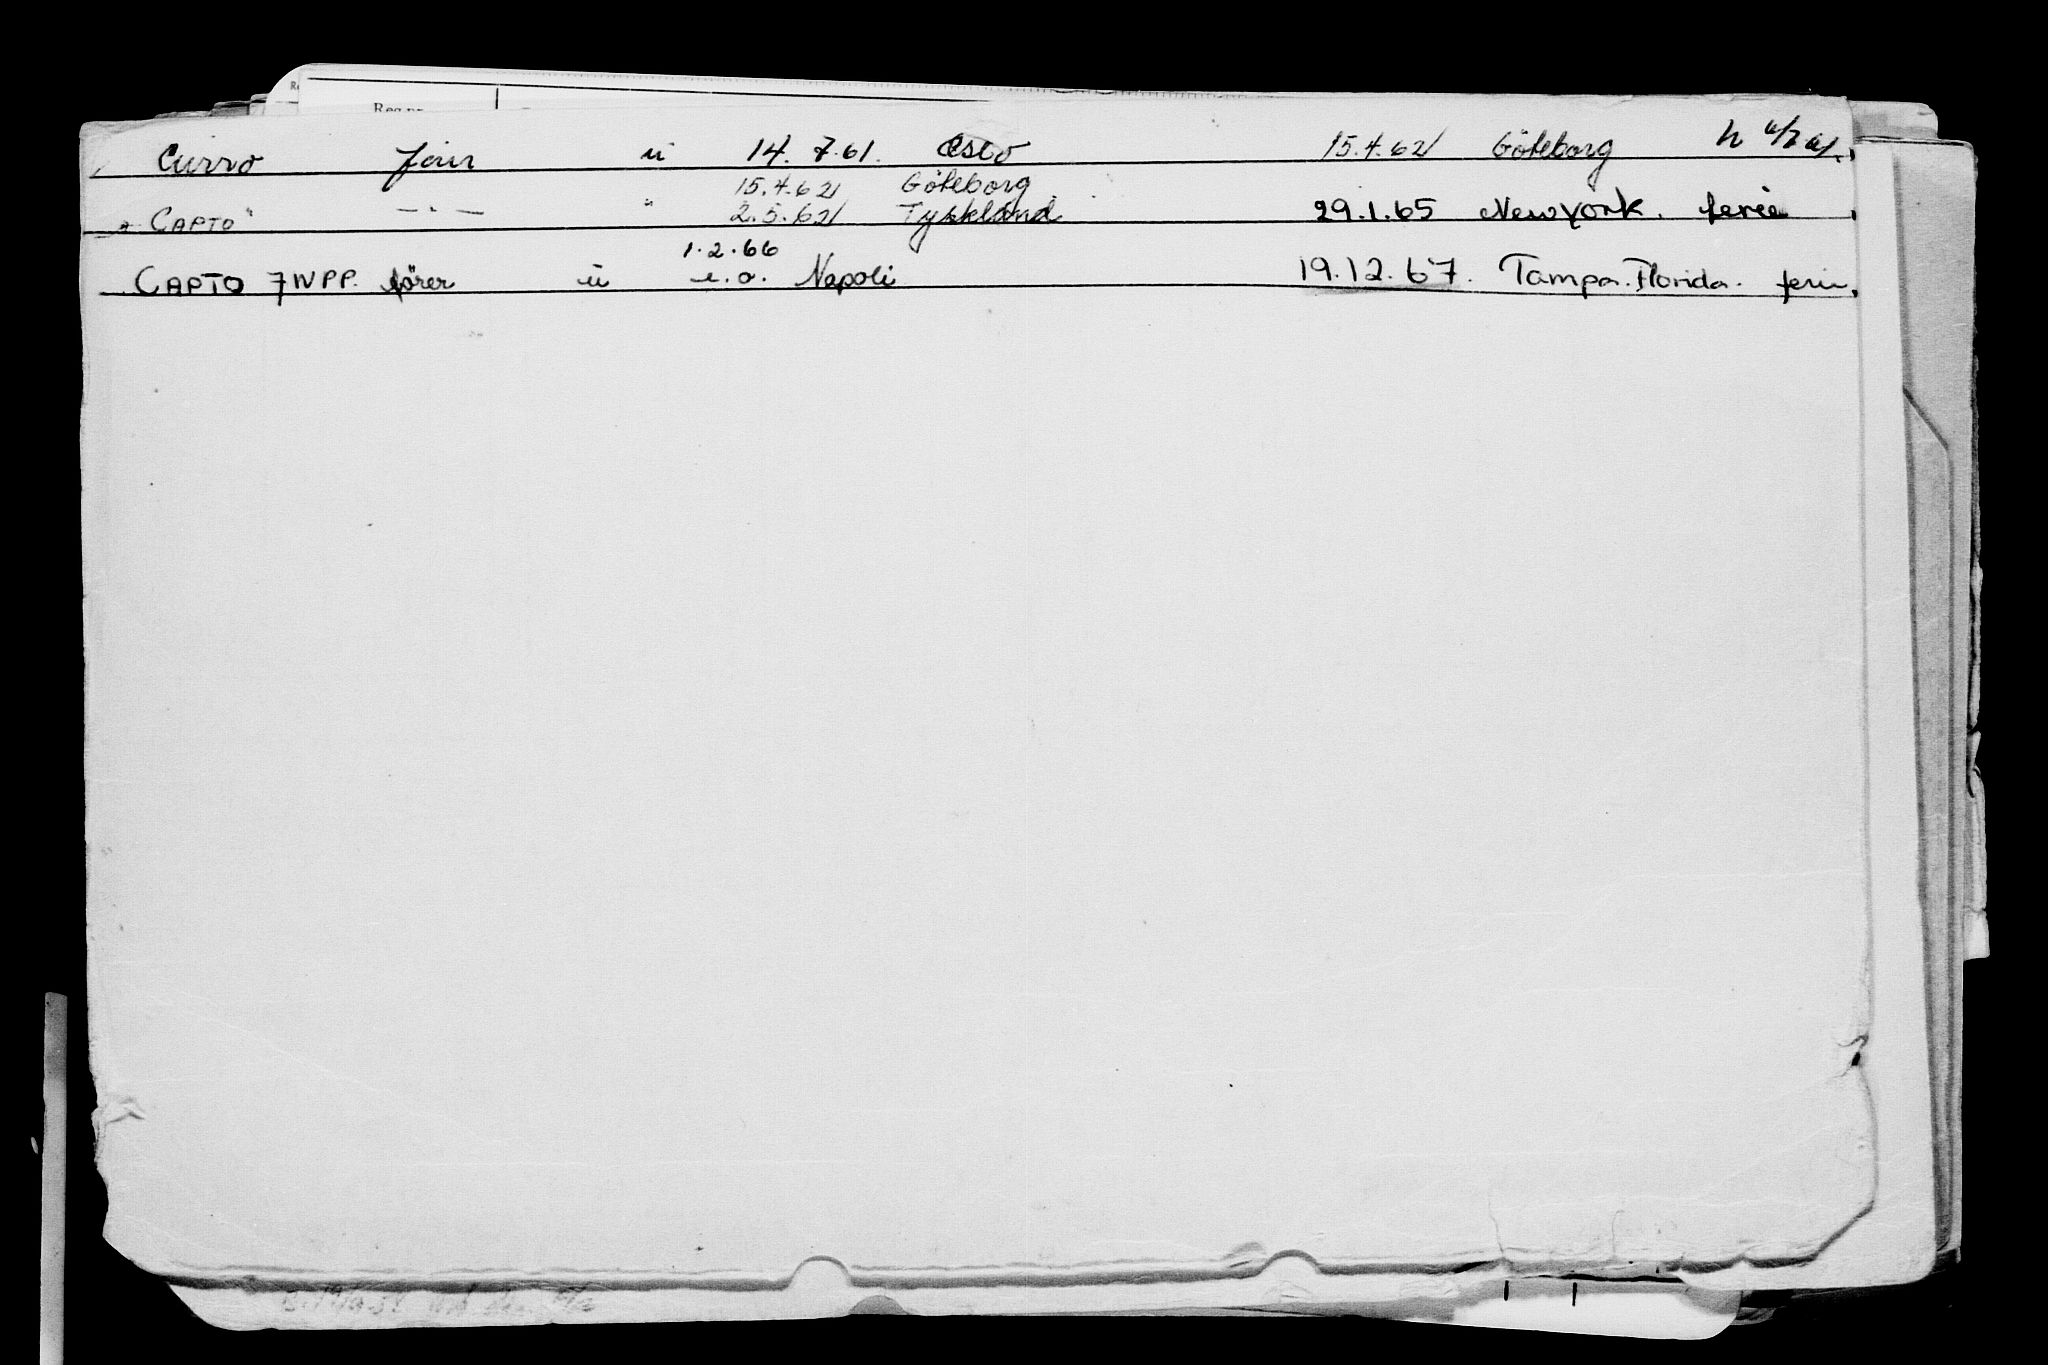 Reg.nr.
Curro förer u 14.7.61. Oslo 15.4.62 Göteborg
15.4.62 Göteborg
"CAPTO" —"— " 2.5.62 Tyskland 29.1.65 New York. ferie
1.2.66
CAPTO 7IVPP. förer u e.o. Napoli 19.12.67. Tampa. Florida. ferie